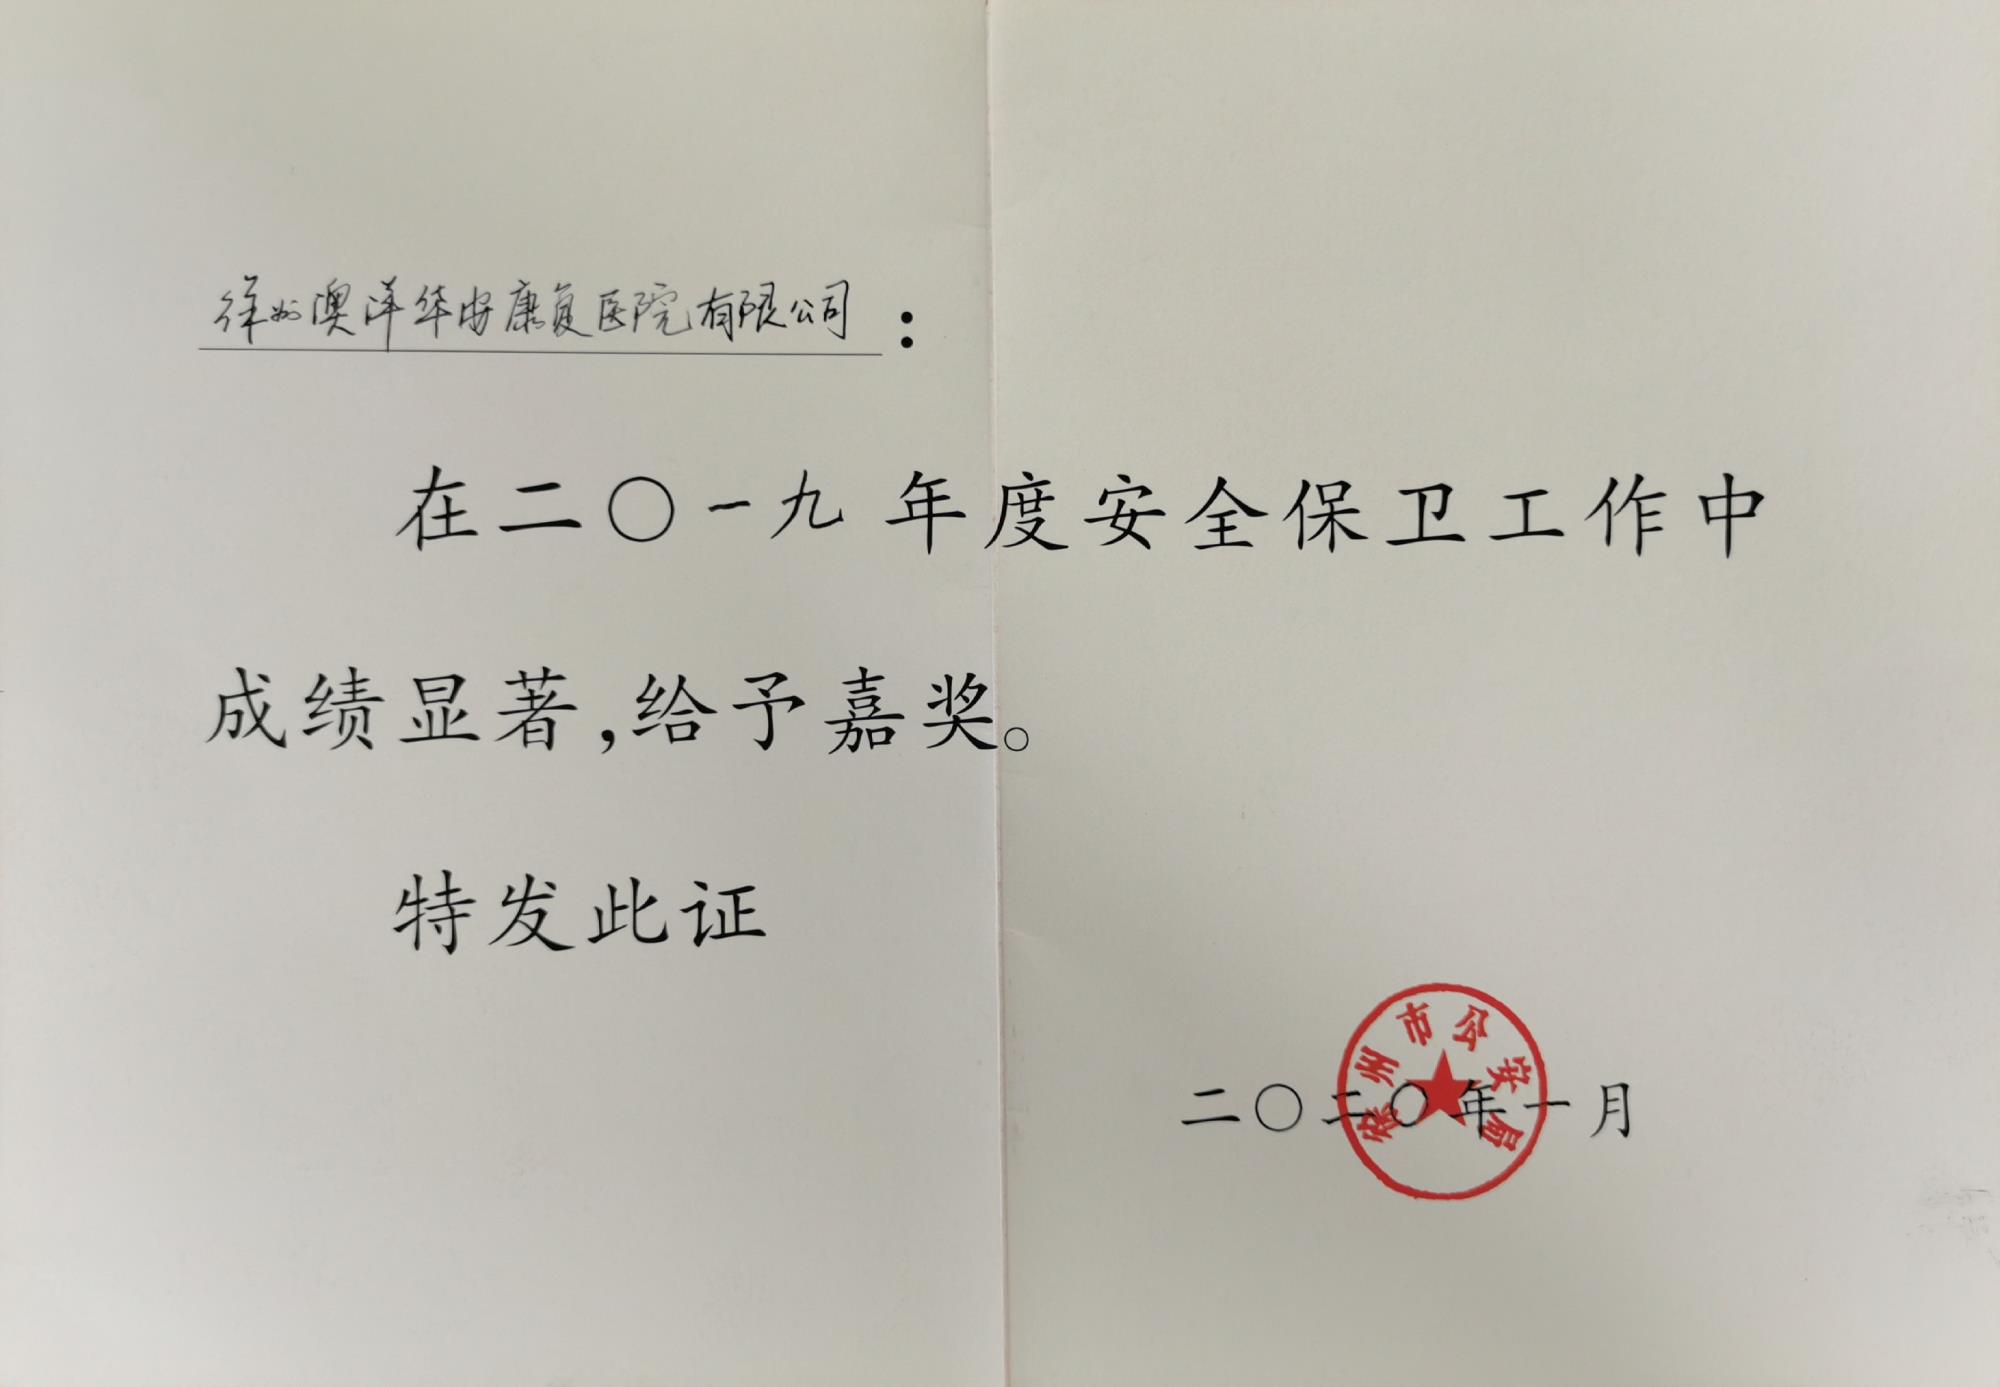 徐州澳洋华安康复医院有限公司：
在二〇一九年度安全保卫工作中
成绩显著，给予嘉奖。
特发此证
徐州市公安局
二〇二〇年一月